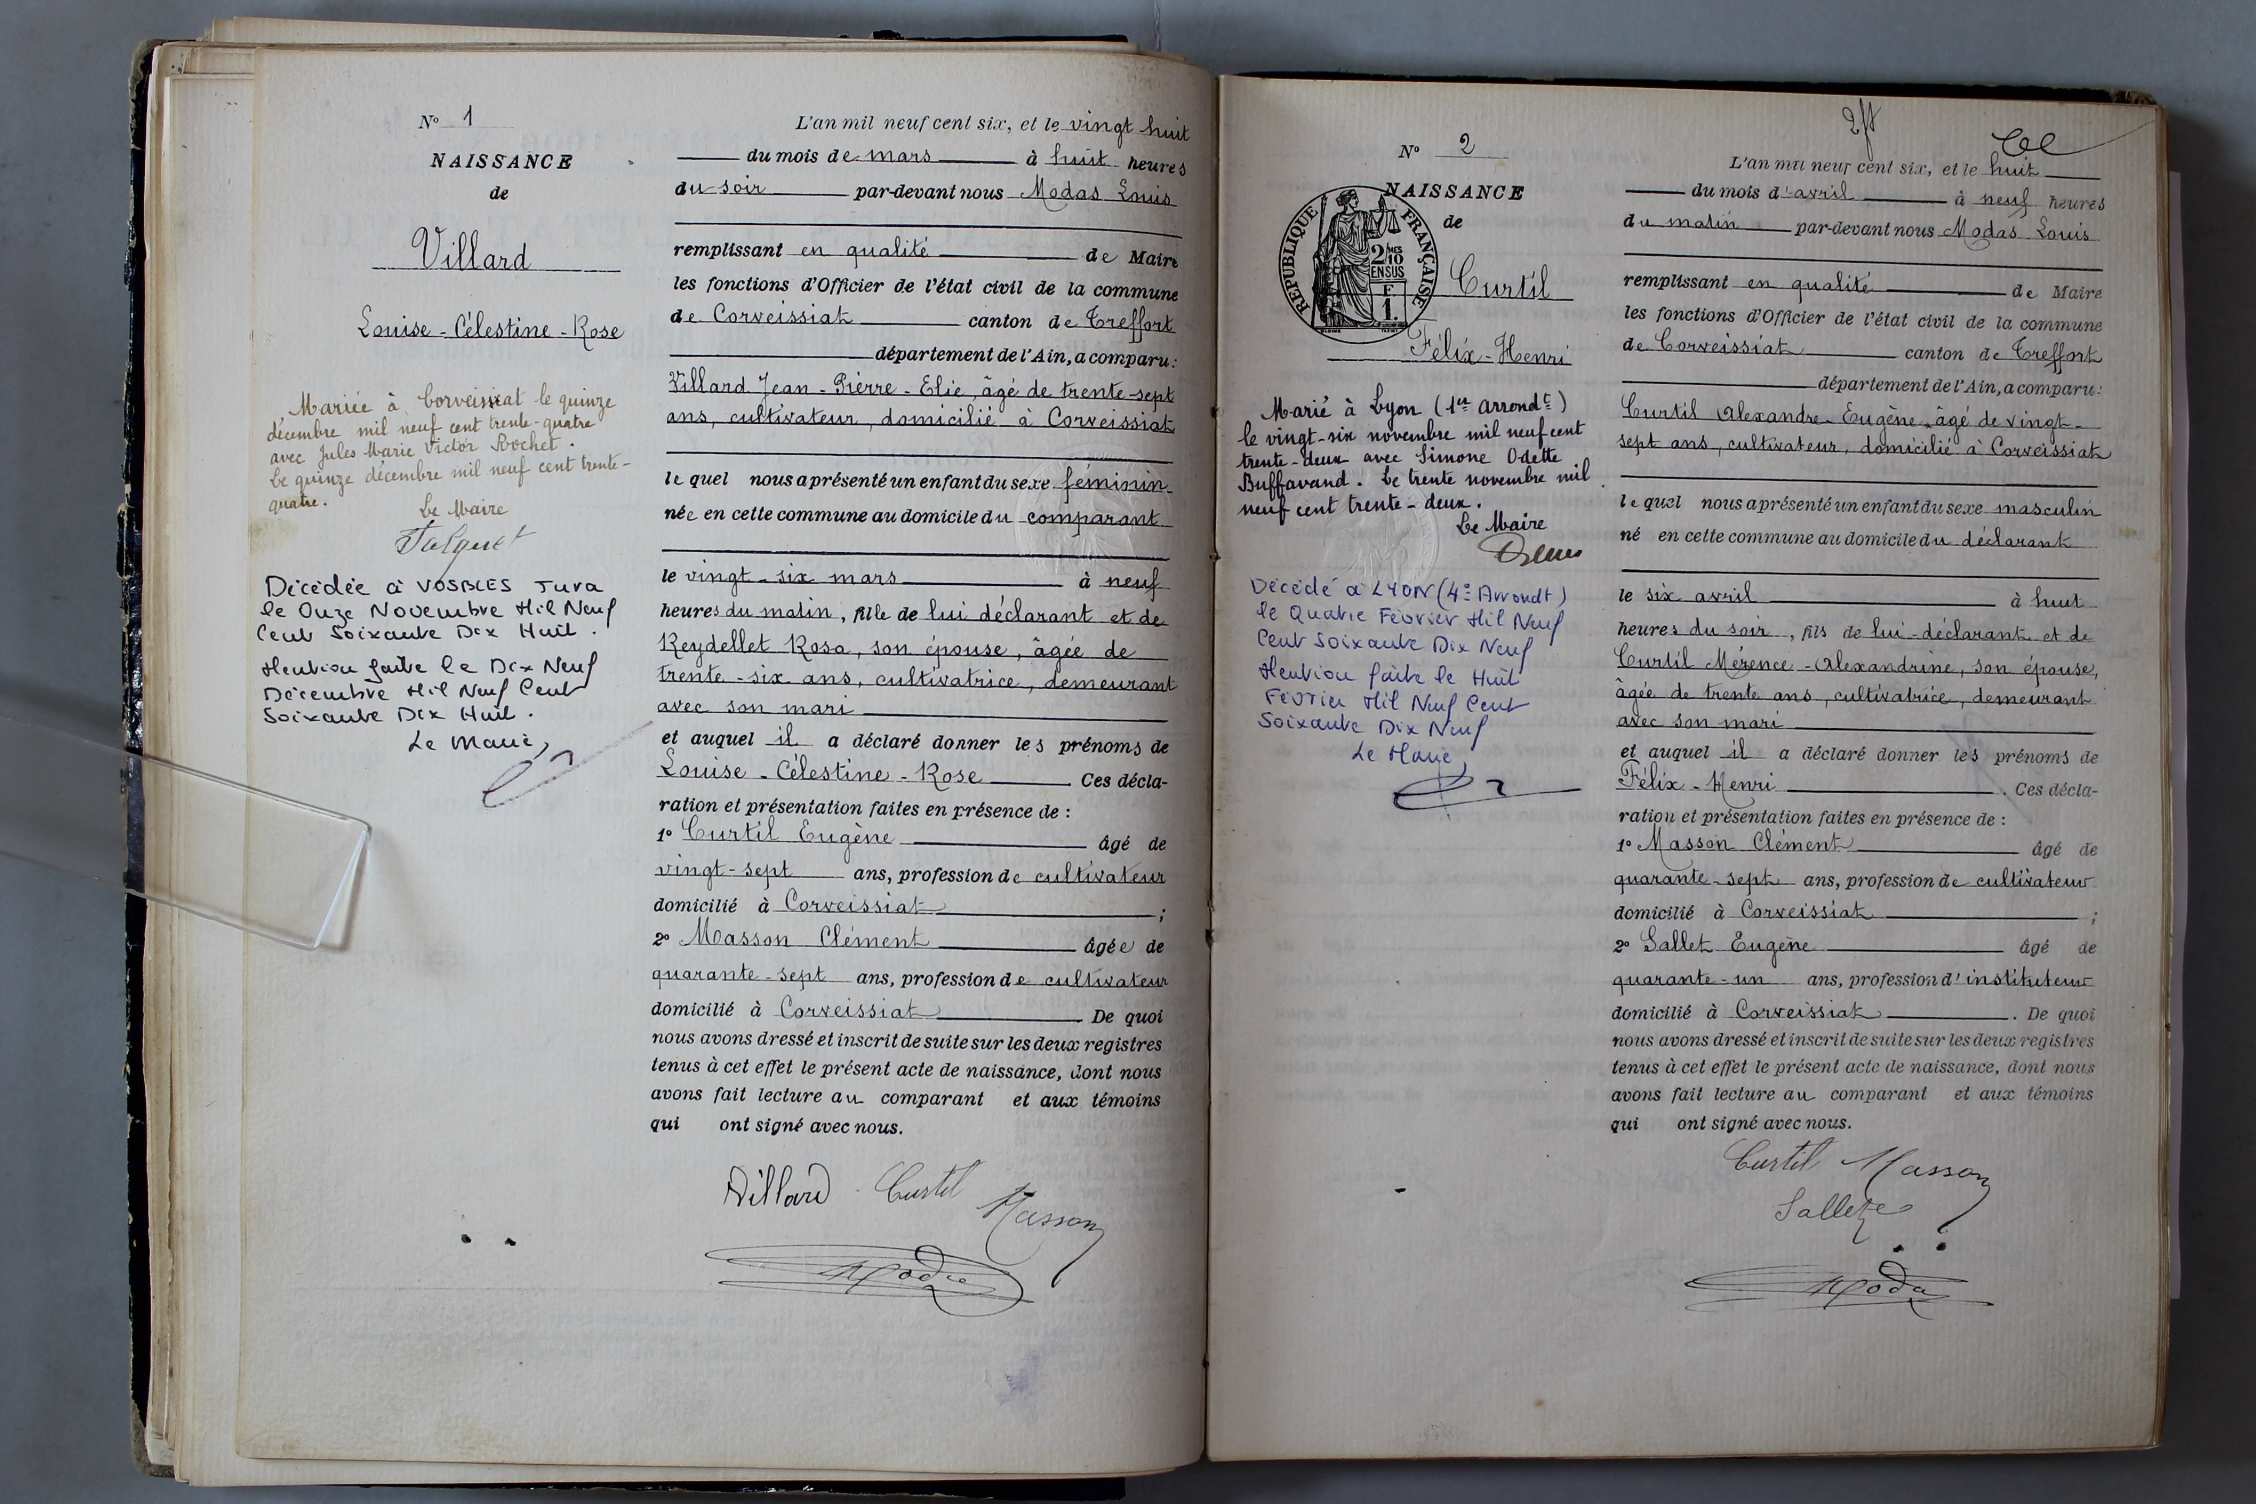 Nº 1
NAISSANCE
de
Villard
Louise-Célestine-Rose
Mariée à Corveissiat le quinze
décembre mil neuf cent trente-quatre
avec Jules Marie Victor Rochet.
Le quinze décembre mil neuf cent trente-
quatre.
Le Maire
Décédée à VOSBLES Jura
le Onze Novembre Mil Neuf
Cent Soixante Dix Huit.
Mention faite le Dix Neuf
Décembre Mil Neuf Cent
Soixante Dix Huit.
Le Maire,
L'an mil neuf cent six, et le vingt huit
du mois de mars à huit heures
du soir par-devant nous Modas Louis
remplissant en qualité de Maire
les fonctions d'Officier de l'état civil de la commune
de Corveissiat canton de Treffort
département de l'Ain, a comparu:
Villard Jean-Pierre-Elie, âgé de trente-sept
ans, cultivateur, domicilié à Corveissiat
lequel nous a présenté un enfant du sexe féminin
née en cette commune au domicile du comparant
le vingt-six mars à neuf
heures du matin, fille de lui déclarant et de
Reydellet Rosa, son épouse, âgée de
trente-six ans, cultivatrice, demeurant
avec son mari
et auquel il a déclaré donner les prénoms de
Louise-Célestine-Rose Ces décla-
ration et présentation faites en présence de:
1º Curtil Eugène âgé de
vingt-sept ans, profession de cultivateur
domicilié à Corveissiat;
2º Masson Clément âgée de
quarante-sept ans, profession de cultivateur
domicilié à Corveissiat. De quoi
nous avons dressé et inscrit de suite sur les deux registres
tenus à cet effet le présent acte de naissance, dont nous
avons fait lecture au comparant et aux témoins
qui ont signé avec nous.
Villard Curtil Masson
Modas
2/4
Nº 2
NAISSANCE
de
RÉPUBLIQUE FRANÇAISE
2/10 MES
EN SUS
F
1.
Curtil
Félix-Henri
Marié à Lyon (1er arrondt)
le vingt-six novembre mil neuf cent
trente-deux avec Simone Odette
Buffavand. Le trente novembre mil
neuf cent trente-deux.
Le Maire
Décédé à LYON (4e Arrondt)
le Quatre Février Mil Neuf
Cent Soixante Dix Neuf
Mention faite le Huit
Février Mil Neuf Cent
Soixante Dix Neuf
Le Maire,
L'an mil neuf cent six, et le huit
du mois d'avril à neuf heures
du matin par-devant nous Modas Louis
remplissant en qualité de Maire
les fonctions d'Officier de l'état civil de la commune
de Corveissiat canton de Treffort
département de l'Ain, a comparu:
Curtil Alexandre-Eugène âgé de vingt-
sept ans, cultivateur, domicilié à Corveissiat
lequel nous a présenté un enfant du sexe masculin
né en cette commune au domicile du déclarant
le six avril à huit
heures du soir, fils de lui-déclarant et de
Curtil Mérence-Alexandrine, son épouse,
âgée de trente ans, cultivatrice, demeurant
avec son mari
et auquel il a déclaré donner les prénoms de
Félix-Henri. Ces décla-
ration et présentation faites en présence de:
1º Masson Clément âgé de
quarante-sept ans, profession de cultivateur
domicilié à Corveissiat;
2º Sallet Eugène âgé de
quarante-un ans, profession d'instituteur
domicilié à Corveissiat. De quoi
nous avons dressé et inscrit de suite sur les deux registres
tenus à cet effet le présent acte de naissance, dont nous
avons fait lecture au comparant et aux témoins
qui ont signé avec nous.
Curtil Masson
Sallet
Modas